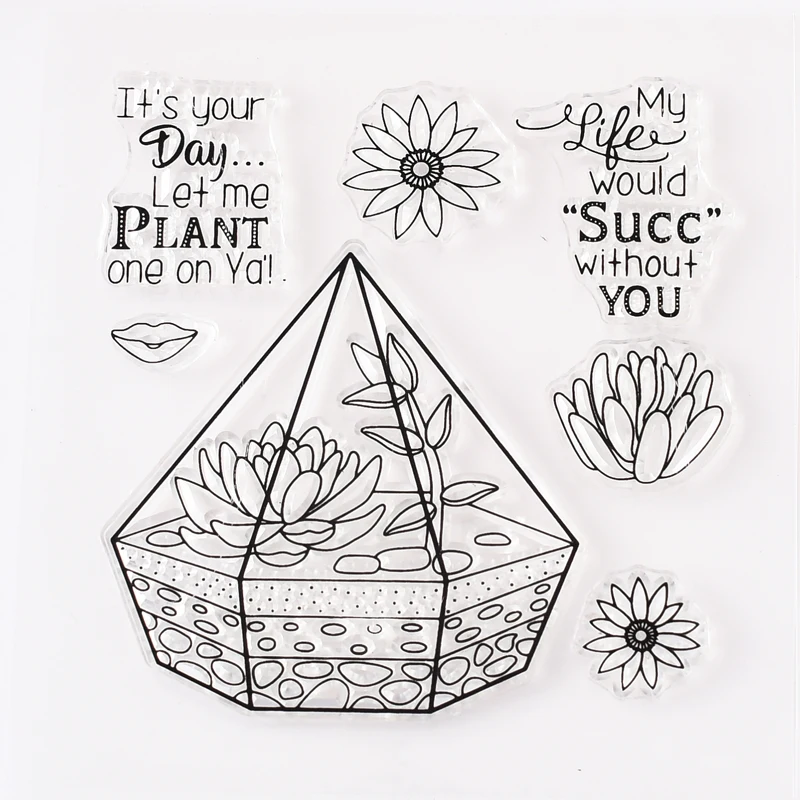 It's your
Day...
Let me
PLANT
one on Ya'!.
My
Life
would
“Succ”
without
YOU